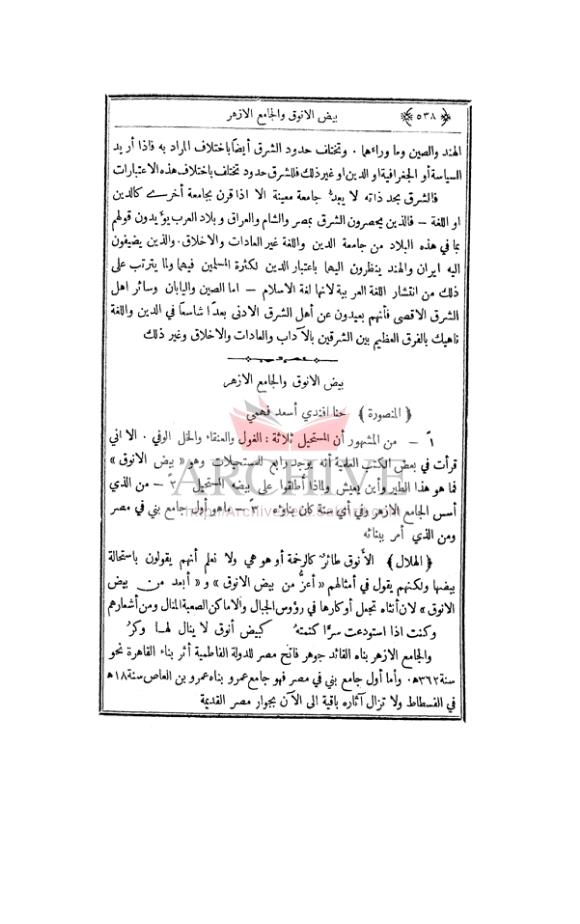 ﴿ ٥٣٨ ﴾ بيض الانوق والجامع الازهر
الهند والصين وما وراءهما . وتختلف حدود الشرق أيضاً باختلاف المراد به فاذا أريد
السياسة أو الجغرافية او الدين او غير ذلك فللشرق حدود تختلف باختلاف هذه الاعتبارات
فالشرق بحد ذاته لا يعدُّ جامعة معينة الا اذا قرن بجامعة أخرى كالدين
او اللغة — فالذين يحصرون الشرق بمصر والشام والعراق وبلاد العرب يؤيدون قولهم
بما في هذه البلاد من جامعة الدين واللغة غير العادات والاخلاق . والذين يضيفون
اليه ايران والهند ينظرون اليهما باعتبار الدين لكثرة المسلمين فيهما ولما يترتب على
ذلك من انتشار اللغة العربية لانها لغة الاسلام — اما الصين واليابان وسائر اهل
الشرق الاقصى فأنهم بعيدون عن أهل الشرق الادنى بعداً شاسعاً في الدين واللغة
ناهيك بالفرق العظيم بين الشرقين بالآداب والعادات والاخلاق وغير ذلك
بيض الانوق والجامع الازهر
﴿ المنصورة ﴾ حنا افندي أسعد فهمي
١ً — من المشهور أن المستحيل ثلاثة : الغول والعنقاء والخل الوفي . الا اني
قرأت في بعض الكتب العلمية أنه يوجد رابع للمستحيلات وهو « بيض الانوق »
فما هو هذا الطير واين يعيش ولماذا أطلقوا على بيضه المستحيل ٢ً — من الذي
أسس الجامع الازهر وفي أي سنة كان بناؤه ٣ً — ما هو أول جامع بني في مصر
ومن الذي أمر ببنائه
ARCHIVE
﴿ الهلال ﴾ الأنوق طائرٌ كالرخمة أو هو هي ولا نعلم أنهم يقولون باستحالة
بيضها ولكنهم يقول في أمثالهم « أعزُّ من بيض الانوق » و « أبعد من بيض
الانوق » لان أنثاه تجعل أوكارها في رؤوس الجبال والاماكن الصعبة المنال ومن أشعارهم
وكنت اذا استودعت سرًّا كتمتهُ كبيض أنوق لا ينال لها وكرُ
والجامع الازهر بناه القائد جوهر فاتح مصر للدولة الفاطمية أثر بناء القاهرة نحو
سنة ٣٦٢ ﻫ . وأما أول جامع بني في مصر فهو جامع عمرو بناه عمرو بن العاص سنة ١٨ ﻫ
في الفسطاط ولا تزال آثاره باقية الى الآن بجوار مصر القديمة